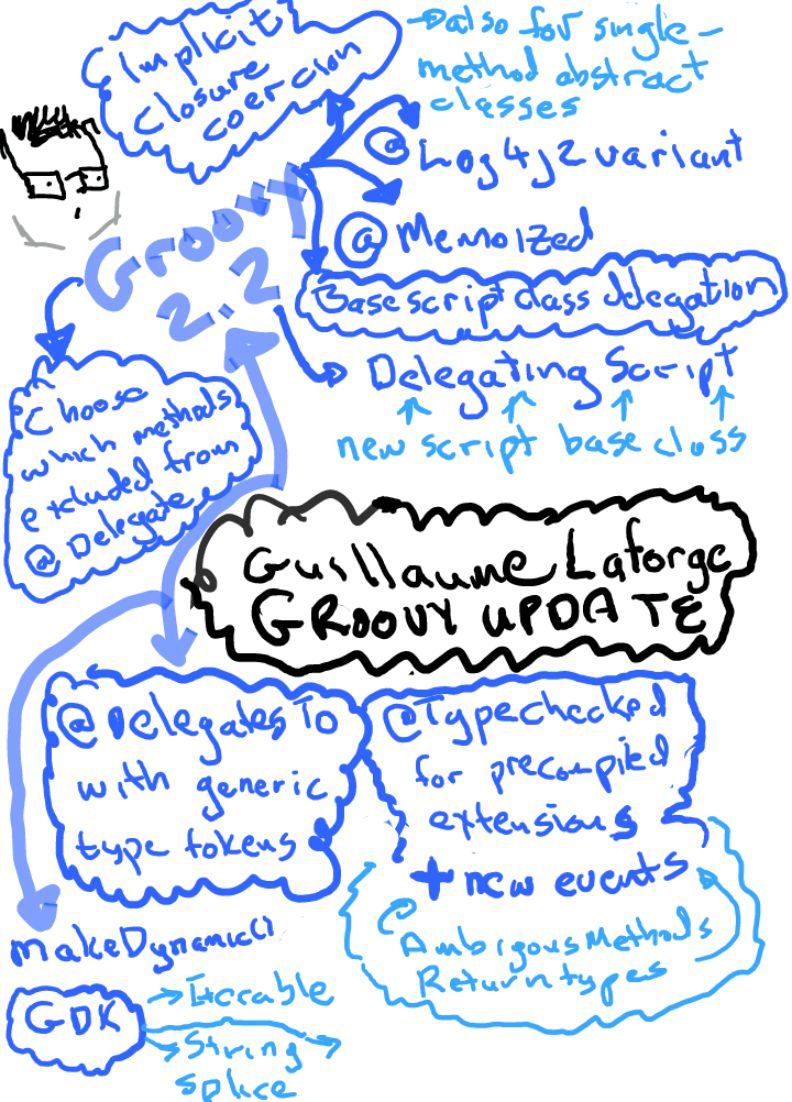 Implicit
closure
coercion
also for single-
method abstract
classes
@Log4j2 variant
@Memoized
Groovy
2.2
Base script class delegation
Delegating Script
new script base class
Choose
which methods
excluded from
@Delegate
Guillaume Laforge
GROOVY UPDATE
@DelegatesTo
with generic
type tokens
@Typechecked
for precompiled
extensions
+ new events
Ambigous Methods
Return types
makeDynamic()
GDK
Iterable
String
splice